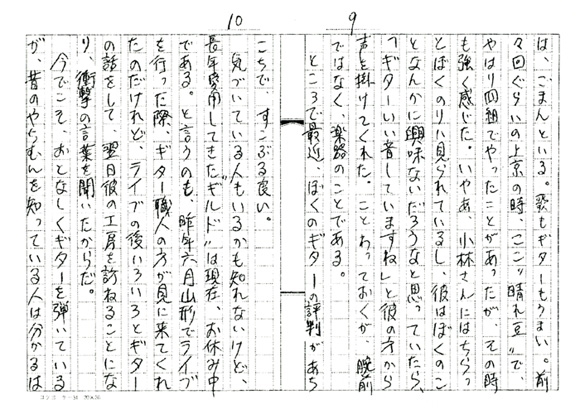 9
は、ごまんといる。歌もギターもうまい。前
々回ぐらいの上京の時、ここ"晴れ豆"で、
やはり四組でやったことがあったが、その時
も強く感じた。いやあ、小林さんにはちらっ
とぼくのリハ見られているし、彼はぼくのこ
となんかに興味ないだろうなと思っていたら、
「ギターいい音していますね」と彼の方から
声を掛けてくれた。ことわっておくが、腕前
ではなく、楽器のことである。
ところで最近、ぼくのギターの評判があち
10
こちで、すこぶる良い。
気づいている人もいるかも知れないけど、
長年愛用してきた"ギルド"は現在、お休み中
である。と言うのも、昨年六月山形でライブ
を行った際、ギター職人の方が見に来てくれ
たのだけれど、ライブの後いろいろとギター
の話をして、翌日彼の工房を訪ねることにな
り、衝撃の言葉を聞いたからだ。
今でこそ、おとなしくギターを弾いている
が、昔のやらもんを知っている人は分かるは
コクヨ ケ-31 20×20